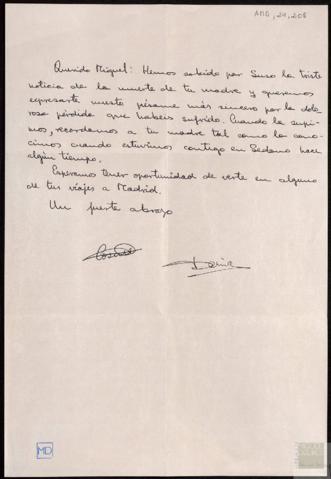 AMD, 29, 208
Querido Miguel: Hemos sabido por Suso la triste
noticia de la muerte de tu madre y queremos
expresarte nuestro pésame más sincero por la dolo
rosa pérdida que habéis sufrido. Cuando la supi-
mos, recordamos a tu madre tal como la cono-
cimos cuando estuvimos contigo en Sedano hace
algún tiempo.
Esperamos tener oportunidad de verte en alguno
de tus viajes a Madrid.
Un fuerte abrazo
MD